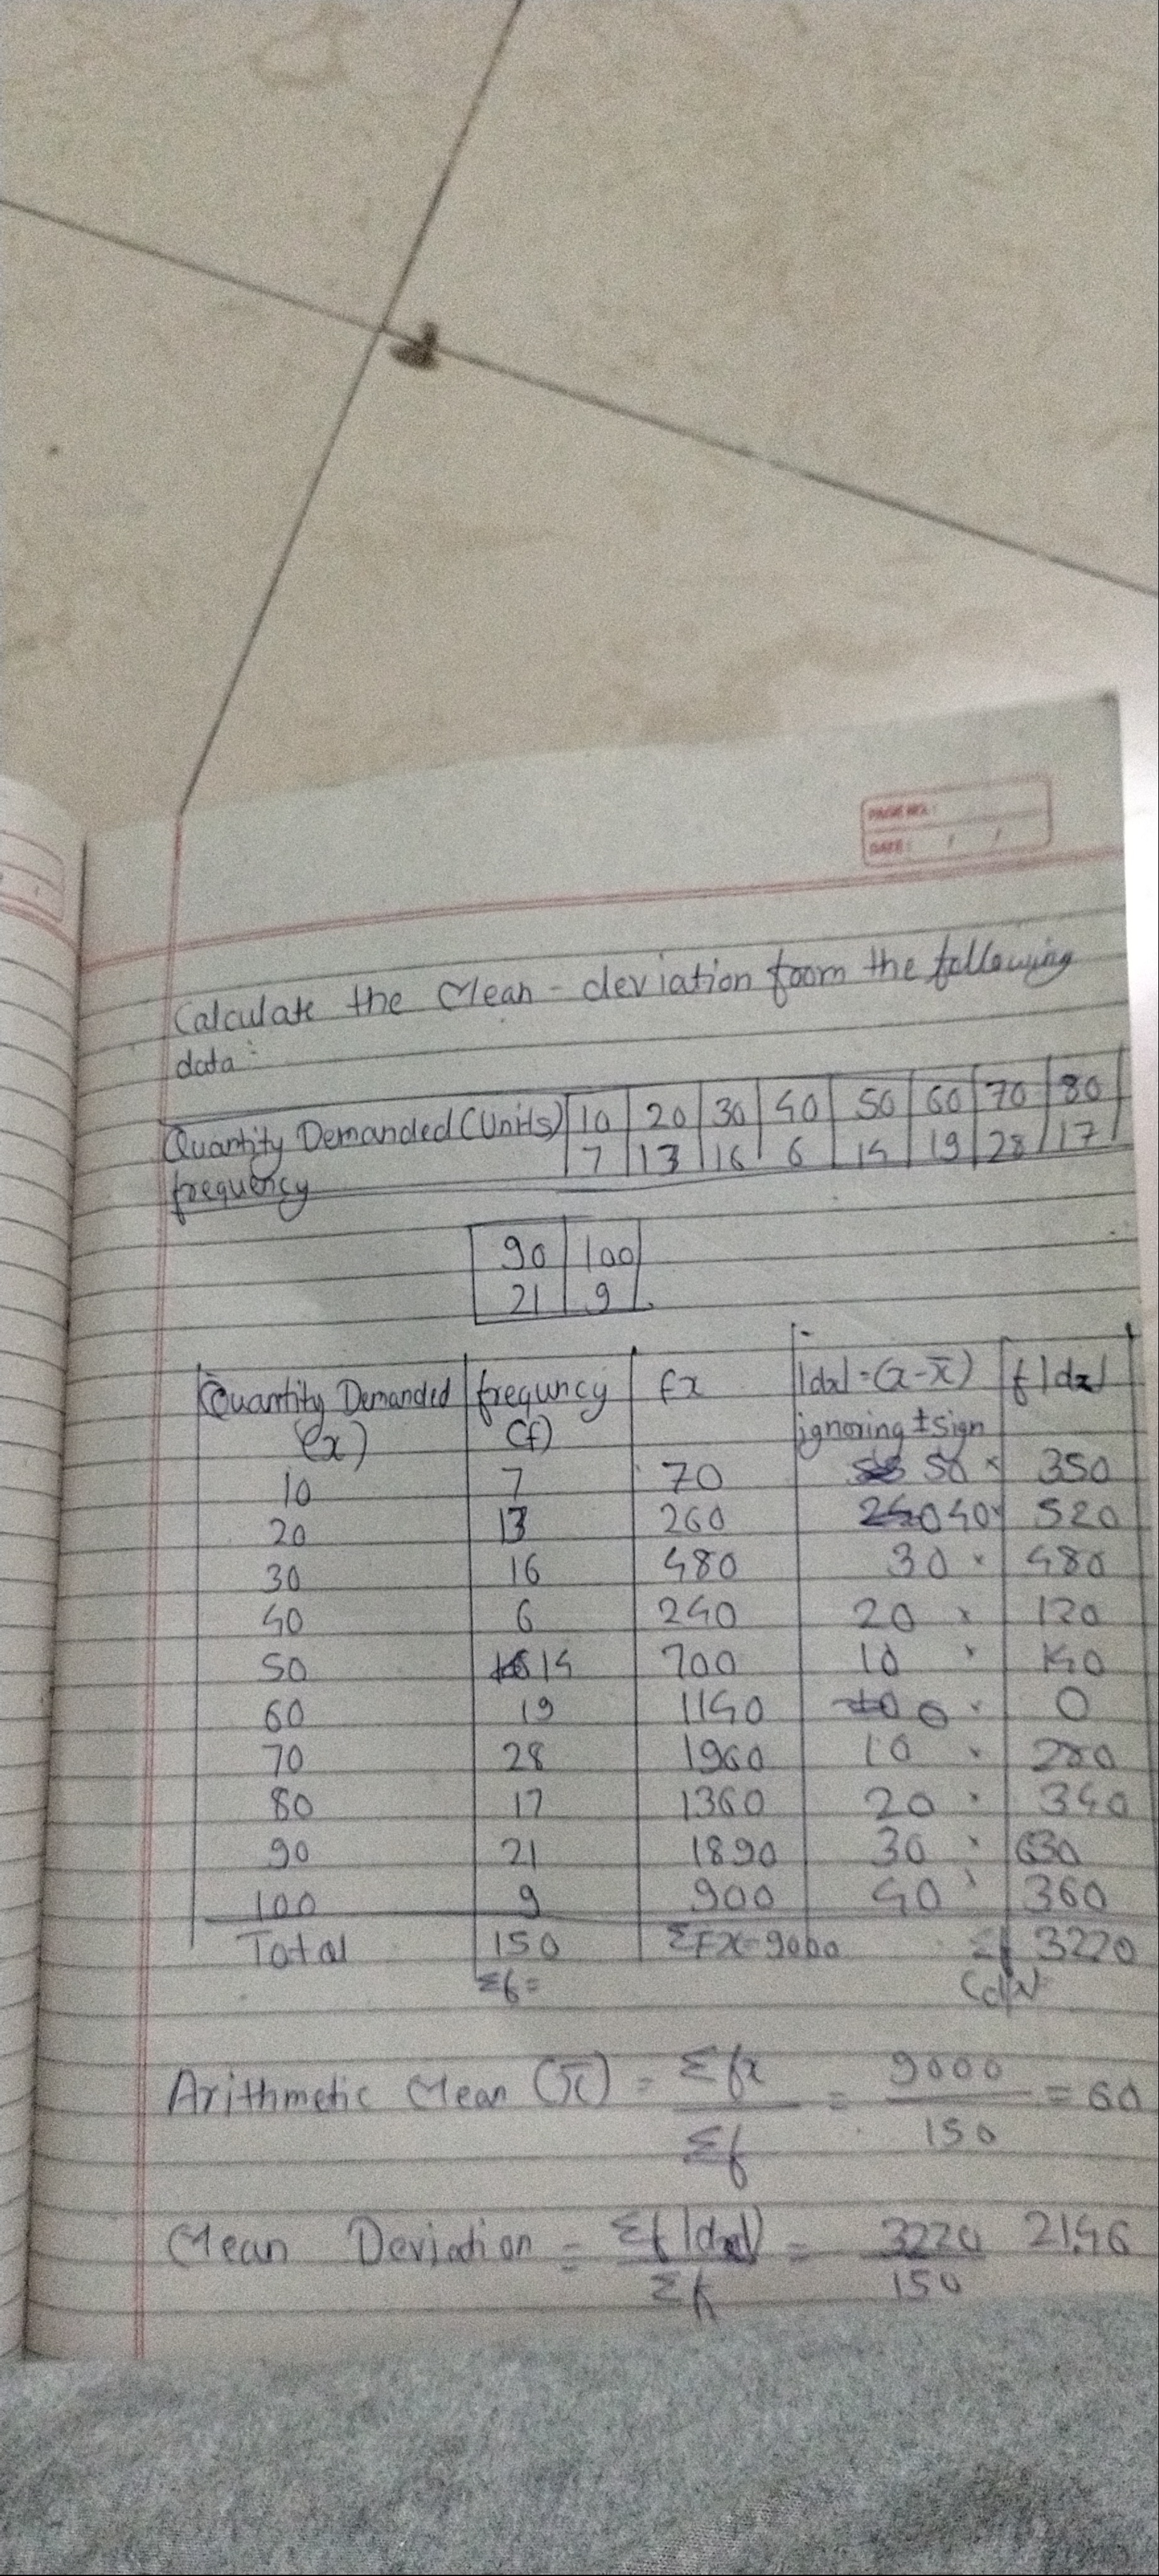 PAGE NO.:
DATE: / /
Calculate the Mean - deviation from the following
data :
Quantity Demanded (Units) 10 20 30 40 50 60 70 80
frequency 7 13 16 6 14 19 28 17
90 100
21 9
Quantity Demanded (x) frequncy (f) fx |dx| = (x-x̄) ignoring ± sign f|dx|
10 7 70 50 350
20 13 260 40 520
30 16 480 30 480
40 6 240 20 120
50 14 700 10 140
60 19 1140 0 0
70 28 1960 10 280
80 17 1360 20 340
90 21 1890 30 630
100 9 900 40 360
Total 150 ΣFX=9000 Σf 3220
Σf=
Arithmetic Mean (x̄) = Σfx / Σf = 9000 / 150 = 60
Mean Deviation = Σf|dx| / Σf = 3220 / 150 21.46